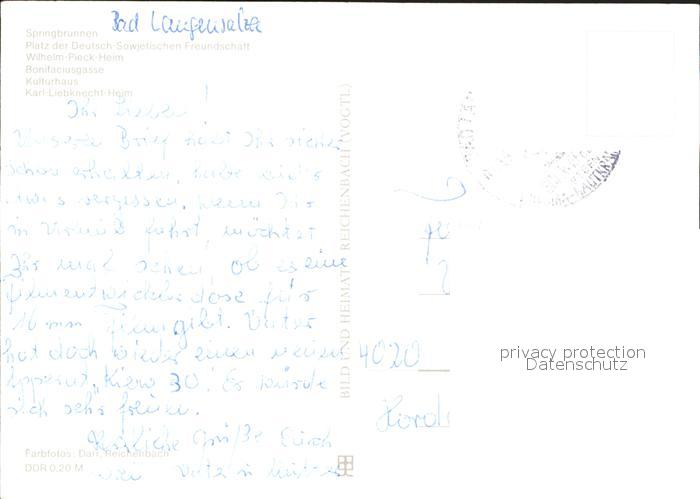 Bad Langensalza
Springbrunnen
Platz der Deutsch-Sowjetischen Freundschaft
Wilhelm-Pieck-Heim
Bonifaciusgasse
Kulturhaus
Karl-Liebknecht-Heim
Ihr Lieben!
Unseren Brief habt Ihr sicher
schon erhalten, habe
was vergessen. Wenn Ihr
in Urlaub fahrt, möchtet
Ihr mal sehen, ob es eine
Filmentwicklerdose für
16 mm Film gibt. Vater
hat doch wieder einen neuen
Apparat, "Kiew 30". Er würde
sich sehr freuen.
Herzliche Grüße Euch
Vater u. Mutter
Farbfotos: Darr, Reichenbach
DDR 0,20 M
BILD UND HEIMAT REICHENBACH (VOGTL)
4020
privacy protection
Datenschutz